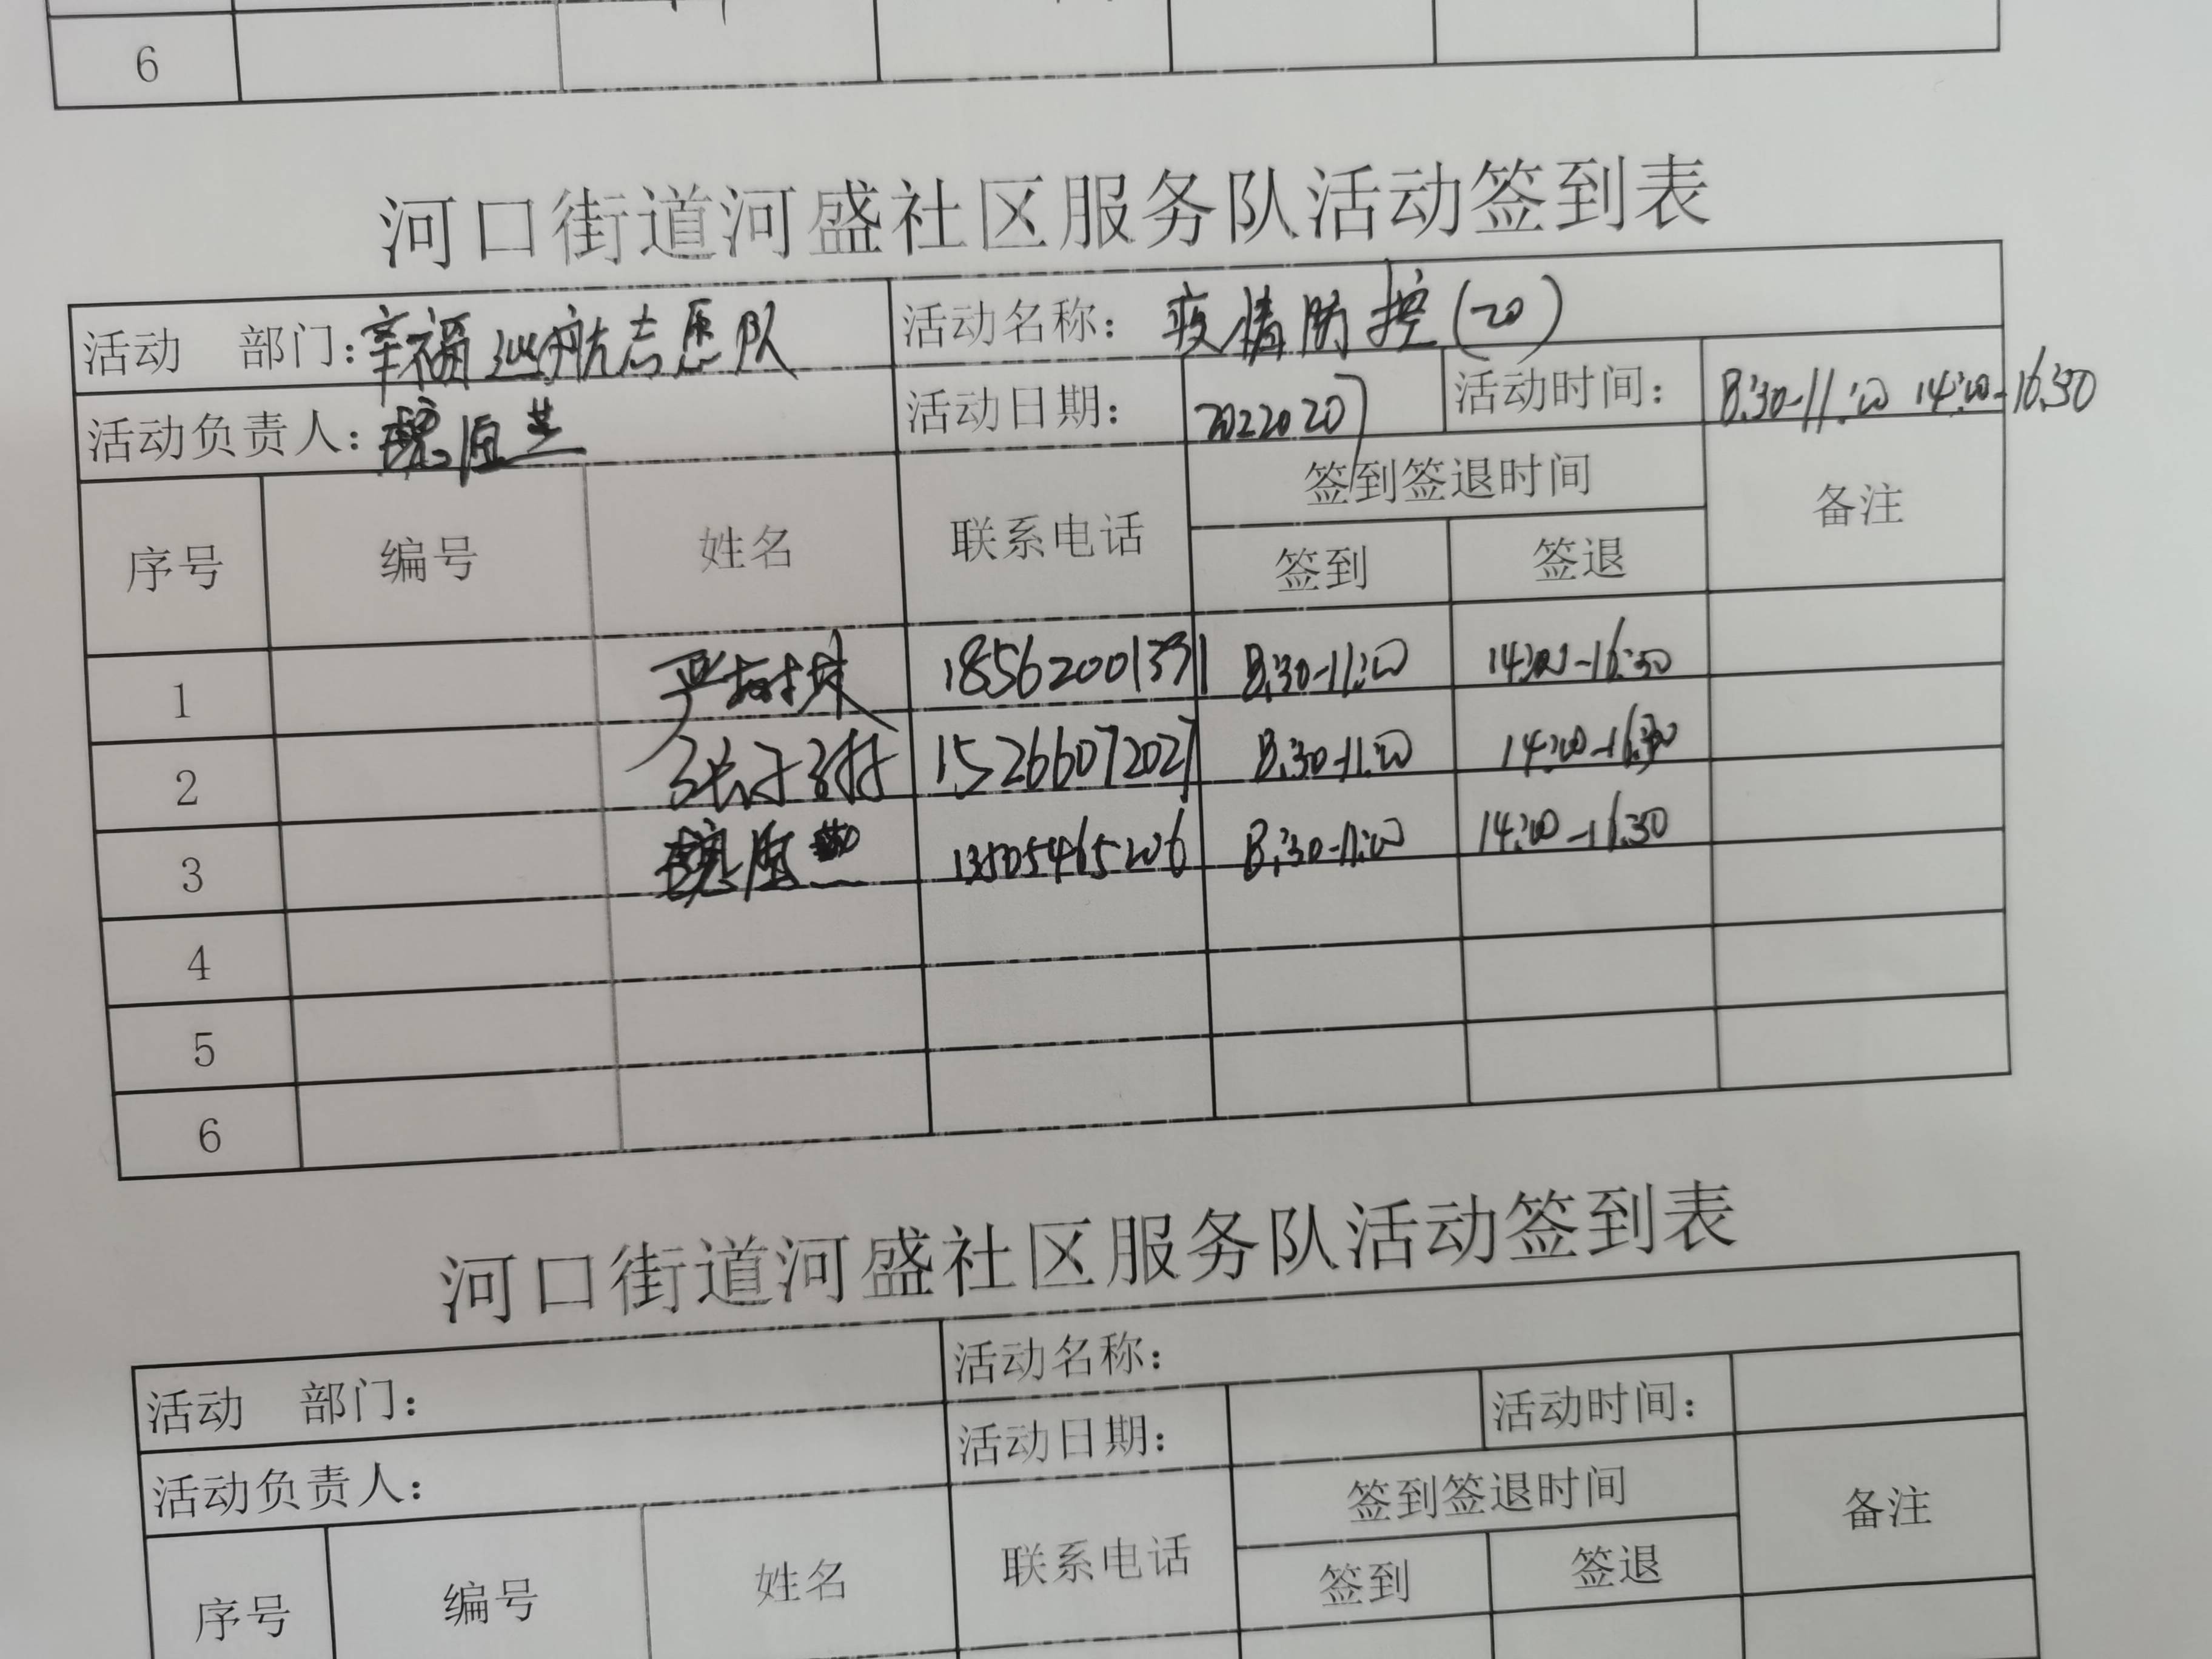 6
河口街道河盛社区服务队活动签到表
活动 部门：幸福巡航志愿队 活动名称：疫情防控（20）
活动负责人： 活动日期： 20220207 活动时间： 8:30-11:00 14:00-16:30
序号 编号 姓名 联系电话 签到签退时间 备注
签到 签退
1 严树林 18562001331 8:30-11:00 14:00-16:30
2 15266072027 8:30-11:00 14:00-16:30
3 13505465206 8:30-11:00 14:00-16:30
4
5
6
河口街道河盛社区服务队活动签到表
活动 部门： 活动名称：
活动负责人： 活动日期： 活动时间：
序号 编号 姓名 联系电话 签到签退时间 备注
签到 签退